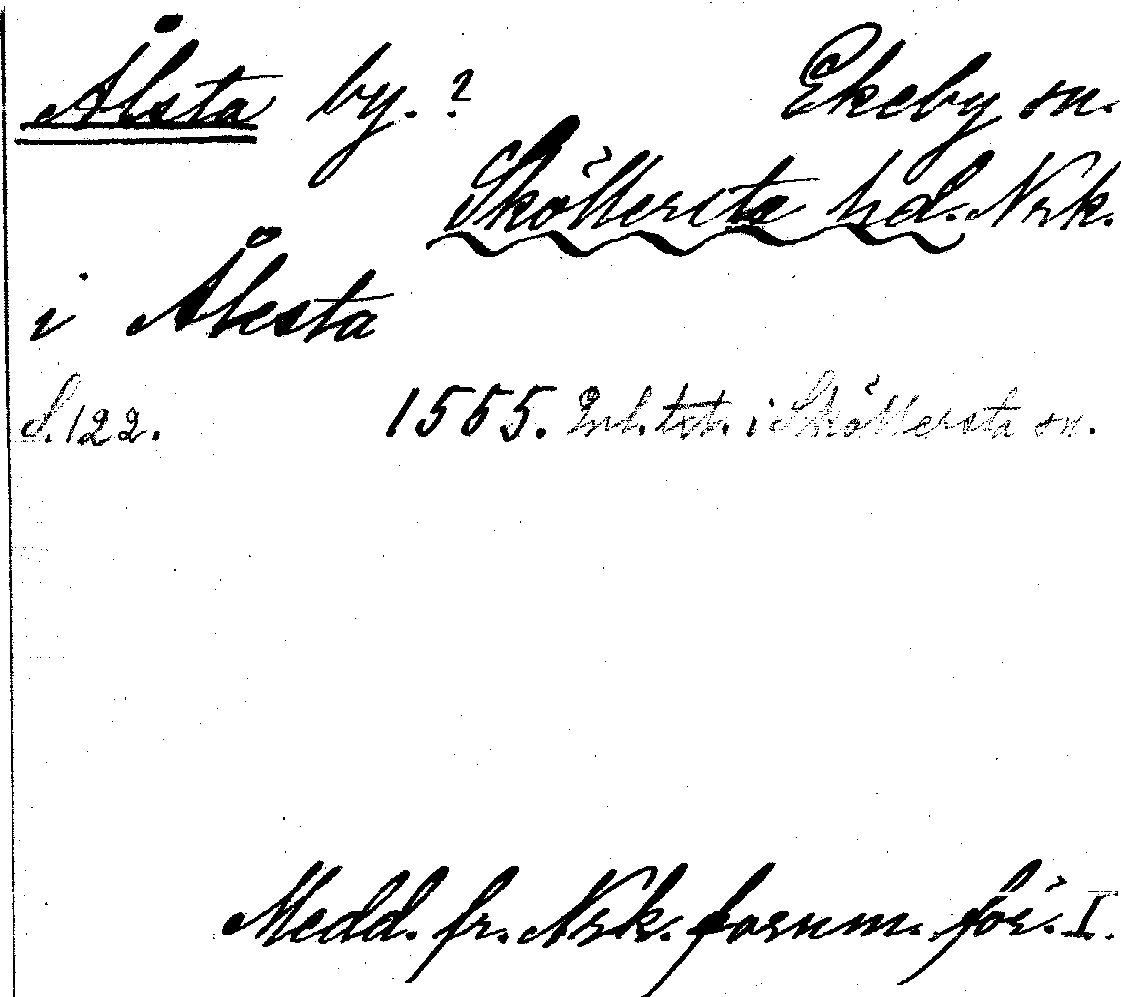 Ålsta by.? Ekeby sn.
Sköllersta hd. Nrk.
i Ålesta
S. 122. 1555. Inl. txt. i Sköllersta sn.
Medd. fr. Nrk. fornm. för. I.